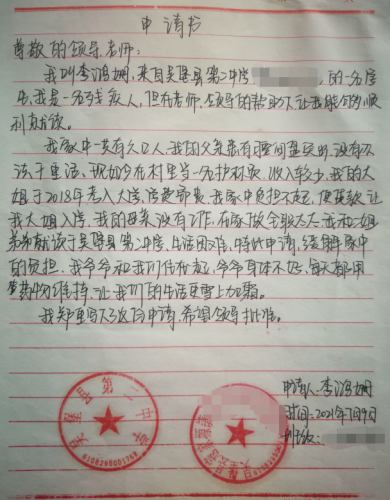 申请书
尊敬的领导、老师:
我叫李鸿姗,来自吴堡县第二中学 的一名学
生,我是一名残疾人,但在老师、领导的帮助下让我能够顺
利就读。
我家中一共有六口人,我的父亲患有腰间盘突出,没有办
法干重活,现如今在村里当一名护林员,收入较少,我的大
姐于2018年考入大学,学费昂贵,我家中负担不起,便贷款让
我大姐入学,我的母亲没有工作,在家做全职太太,我和二姐
就读于吴堡县第二中学,生活困难,特此申请,缓解家中
的负担,我爷爷和我们住在一起,爷爷身体不好,每天都用
药物维持,让我们的生活更雪上加霜。
我郑重写下这份申请,希望领导批准。
申请人:李鸿姗
时间:2021年7月9日
班级:
吴堡县第二中学
6108290001769